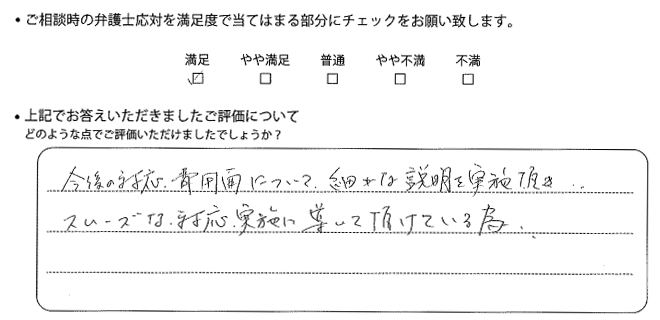 ・ご相談時の弁護士応対を満足度で当てはまる部分にチェックをお願い致します。
満足 やや満足 普通 やや不満 不満
☑ □ □ □ □
・上記でお答えいただきましたご評価について
どのような点でご評価いただけましたでしょうか？
今後の対応、費用面について、細かな説明を実施頂き、
スムーズな、対応、実施に導いて頂けている為、